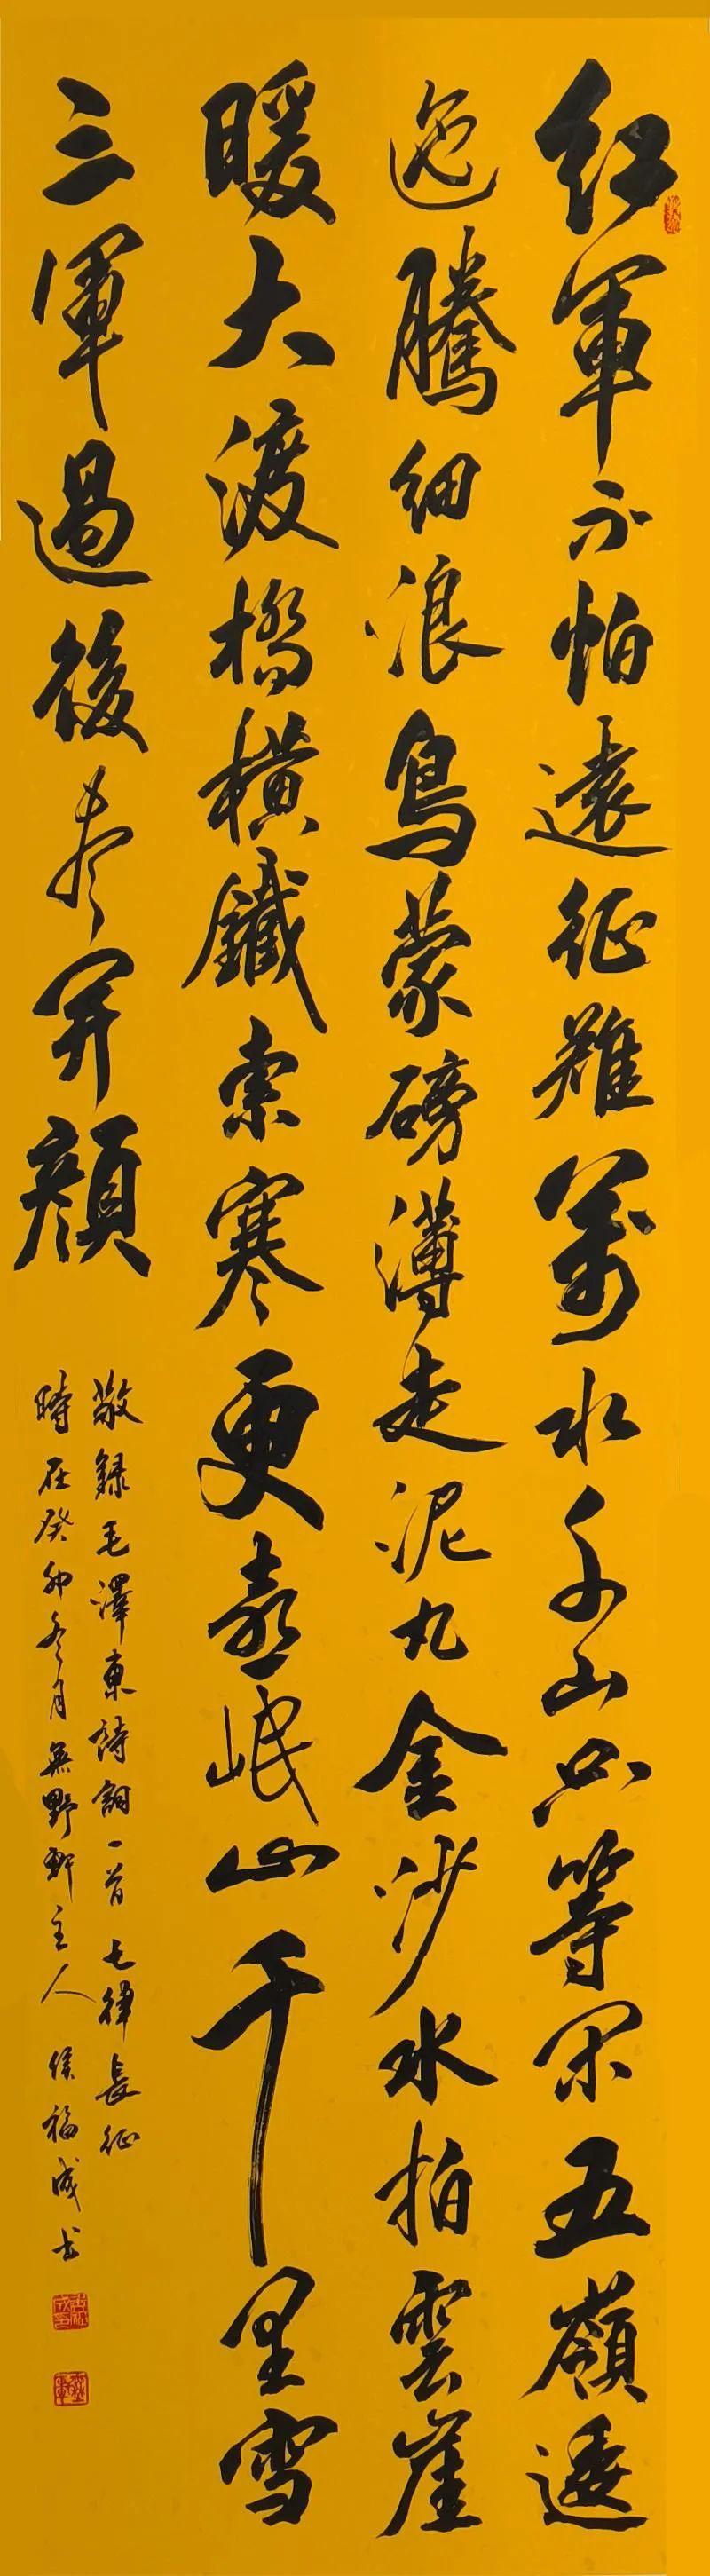 紅軍不怕遠征難萬水千山只等閑五嶺逶
迤騰細浪烏蒙磅薄走泥丸金沙水拍雲崖
暖大渡橋橫鐵索寒更喜岷山千里雪
三軍過後盡開顏
敬録毛澤東詩詞一首七律長征
時在癸卯冬月無野軒主人侯福成书